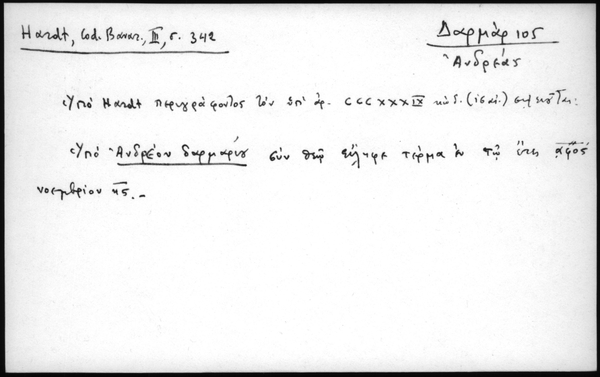 Hardt, Cod. Bavar., III, σ. 342
Δαρμάριος
Ἀνδρέας
Ὑπὸ Hardt περιγράφοντος τὸν ὑπ' ἀρ. CCCXXXIX κώδ. (ις αἰ.) σημειοῦται:
Ὑπὸ Ἀνδρέου δαρμαρίου σὺν θεῷ εἴληφε τέρμα ἐν τῷ ἔτει ͵αφος
νοεμβρίου κς. –